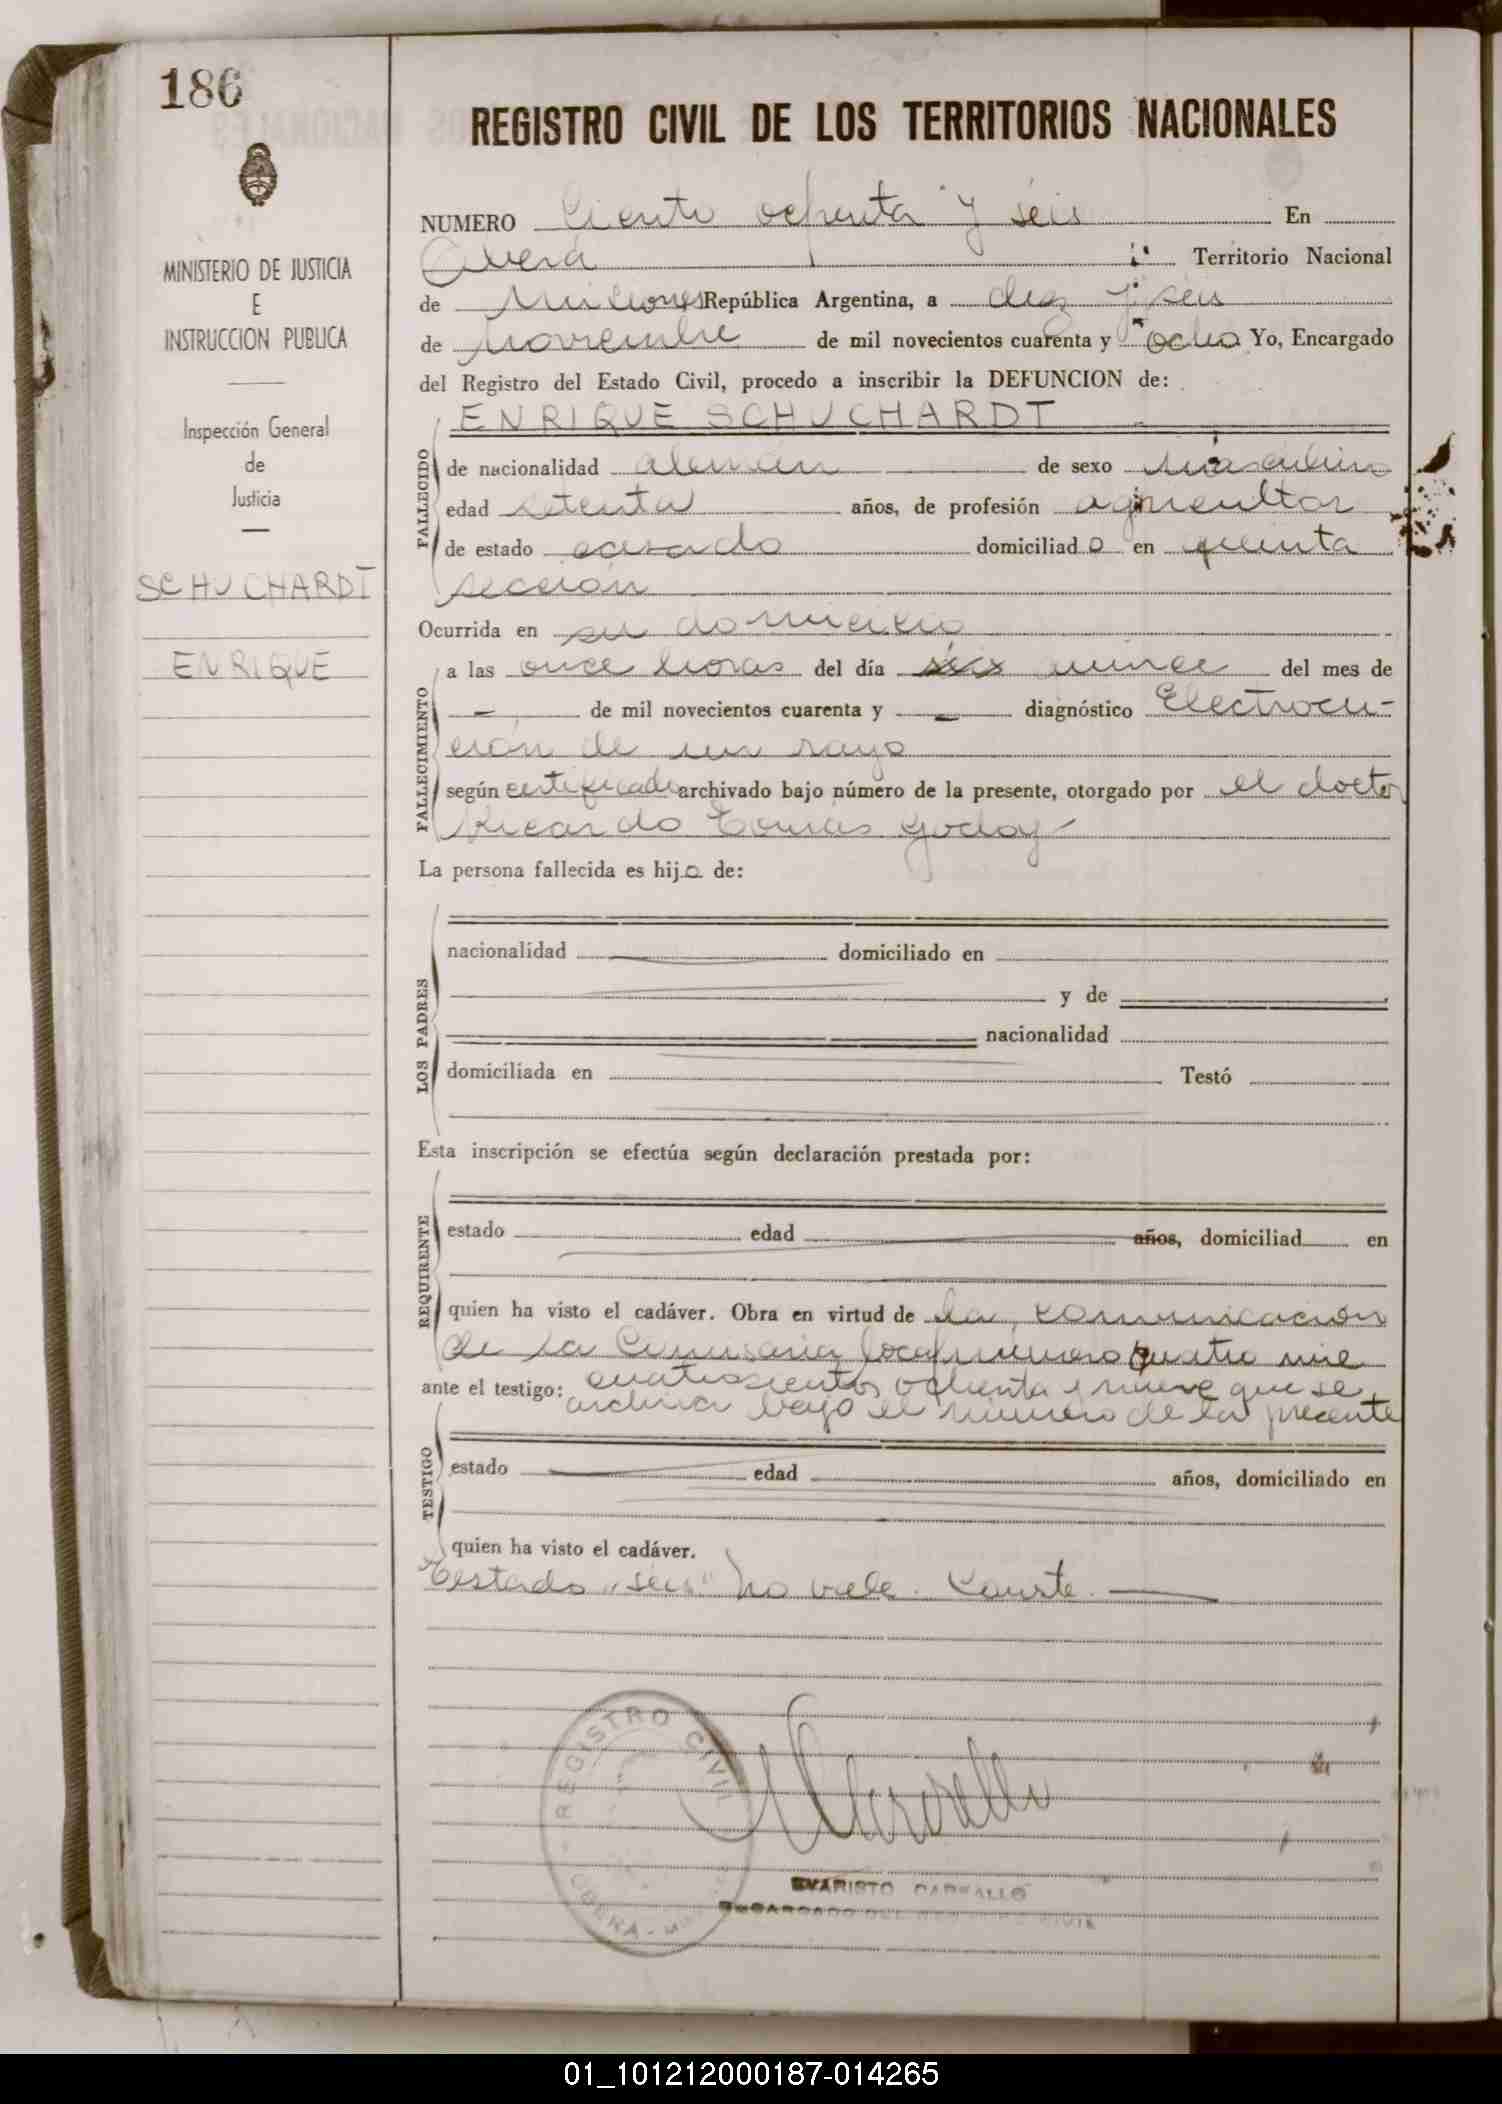 186
REGISTRO CIVIL DE LOS TERRITORIOS NACIONALES
NUMERO Ciento ochenta y séis En
Oberá Territorio Nacional
de Misiones República Argentina, a diez y séis
de Noviembre de mil novecientos cuarenta y ocho Yo, Encargado
del Registro del Estado Civil, procedo a inscribir la DEFUNCION de:
ENRIQUE SCHUCHARDT
FALLECIDO
de nacionalidad alemán de sexo masculino
edad setenta años, de profesión agricultor
de estado casado domiciliado en quinta
sección
Ocurrida en su domicilio
FALLECIMIENTO
a las once horas del día séis quince del mes de
— de mil novecientos cuarenta y — diagnóstico Electrocu-
ción de un rayo
según certificado archivado bajo número de la presente, otorgado por el doctor
Ricardo Tomás Godoy
La persona fallecida es hijo de:
LOS PADRES
nacionalidad domiciliado en
y de
nacionalidad
domiciliada en Testó
Esta inscripción se efectúa según declaración prestada por:
REQUIRENTE
estado edad años, domiciliad en
quien ha visto el cadáver. Obra en virtud de la comunicación
de la Comisaria local número cuatro mil
ante el testigo: cuatrosientos ochenta y nueve que se
archiva bajo el número de la presente
TESTIGO
estado edad años, domiciliado en
quien ha visto el cadáver.
Testado "séis" No vale. Conste.
REGISTRO CIVIL
OBERA - 
EVARISTO CARVALLO
ENCARGADO DEL REGISTRO CIVIL
MINISTERIO DE JUSTICIA
E
INSTRUCCION PUBLICA
Inspección General
de
Justicia
SCHUCHARDT
ENRIQUE
01_101212000187-014265